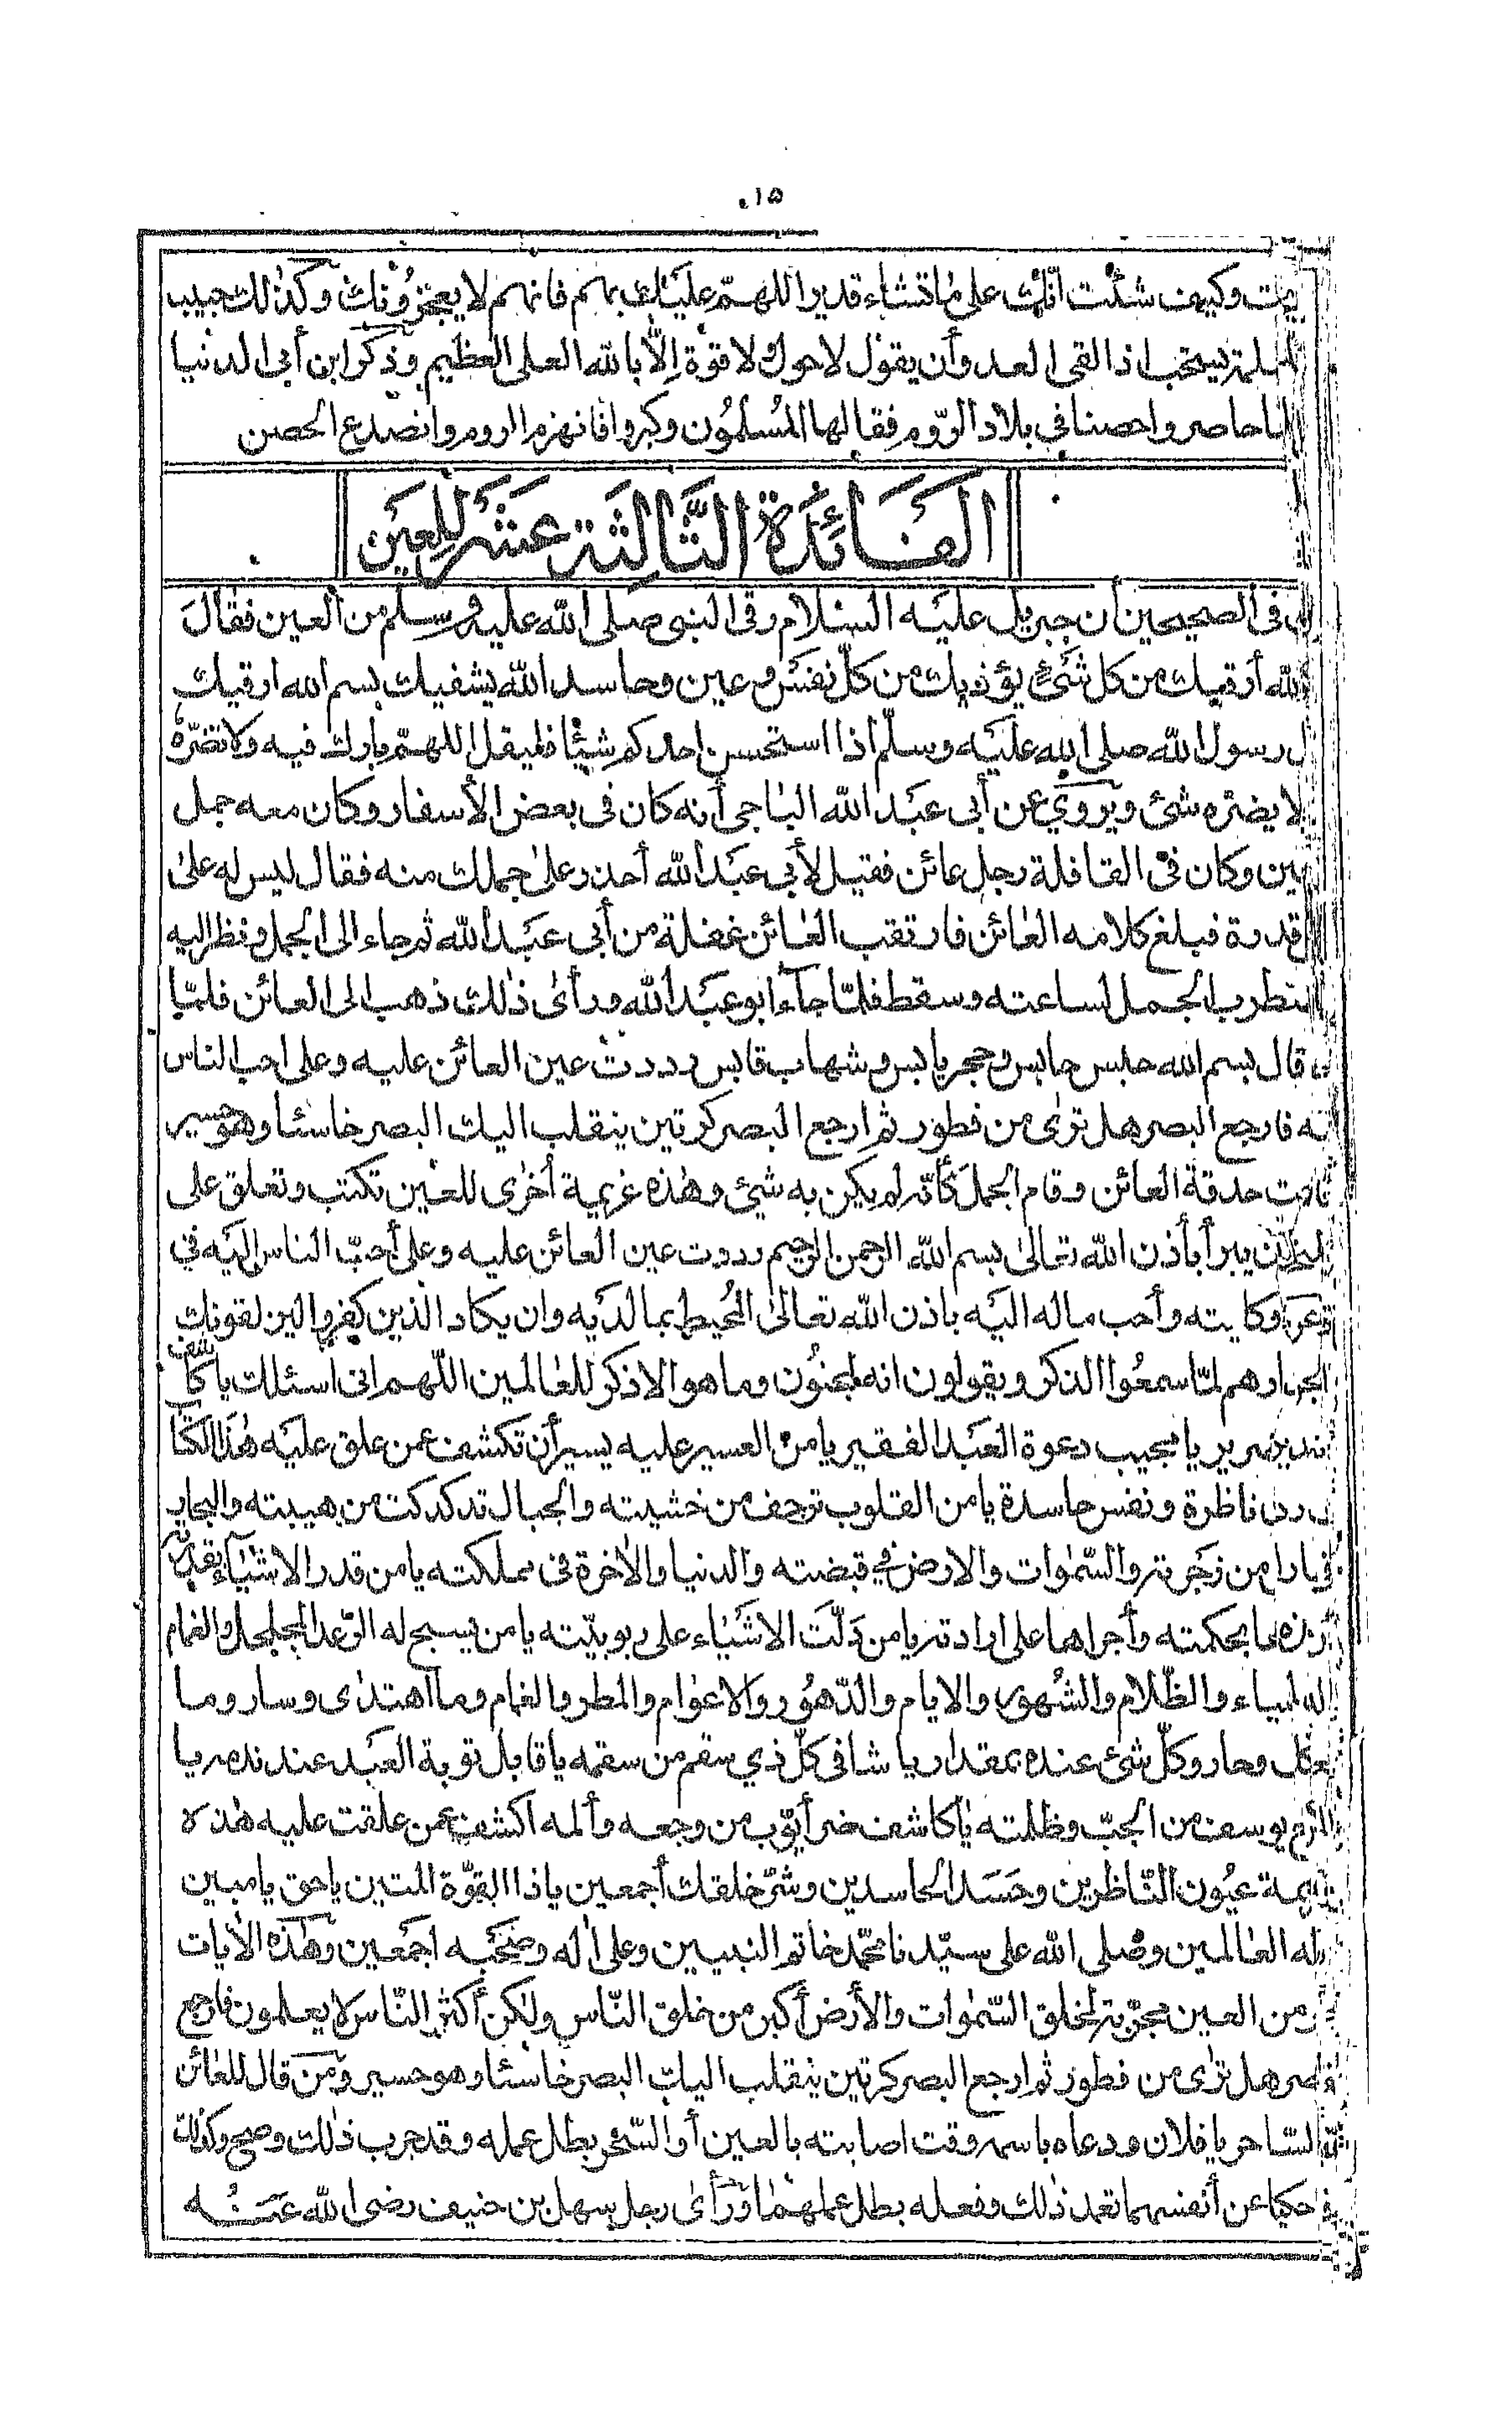 ١٥٠
وكيف شئت انّك على ما تشاء قدير اللهمّ عليك بهم فانهم لا يعجزونك وكذلك حبيب
يستحب اذا لقى العدو أن يقول لا حول ولا قوة إلّا بالله العلى العظيم وذكر ابن أبى الدنيا
حاصروا حصنا فى بلاد الرّوم فقالها المُسلمُون وكبروا فانهزم الروم وانصدع الحصن
الفَائِدَة الثَّالثَة عَشَر لِلعَين
فى الصحيحين أن جبريل عليَه السَلام رقى النبى صَلى الله عليه وسلم من العين فقالَ
أرقيك من كل شَئٍ يؤذيك من كلّ نفسٍ وعين وحاسد الله يشفيك بسم الله ارقيك
رسول الله صلى الله عليَه وسلّم اذا استحسن احدكم شيئًا فليقل اللهمّ بارك فيه ولا تضرّه
لا يضرّه شئ ويروي عن أبى عبَد الله الباجى أنه كان فى بعض الأسفار وكان معه جمل
وكان فى القافلة رجل عائن فقيل لأبى عبَد الله أحذر على جملك منه فقال ليس له على
قدرة فبلغ كلامه العائن فارتقب العَائن غفلة من أبى عبَد الله ثم جاء الى الجمل ونظر اليه
الجمل لساعته وسقط فلمّا جاء ابو عبَد الله ورأى ذلك ذهب الى العائن فلمّا
قال بسم الله حبس حابس وحجر يابس وشهاب قابس رددت عين العائن عليه وعلى احب الناس
فارجع البصر هل ترى من فطور ثم ارجع البصر كرتين ينقلب اليك البصر خاسئا وهو حسير
حدقة العائن وقام الجمل كأنّه لم يكن به شئ وهذه عزيمة أخرى للعين تكتب وتعلق على
يبرأ بأذن الله تعالى بسم الله الرحمن الرحيم رددت عين العائن عليه وعلى أحبّ الناس اليَه فى
وكليته وأحب ماله اليَه باذن الله تعالى المُحيط بما لديَه وان يكاد الذين كفروا ليزلقونك
بابصارهم لمّا سمعُوا الذكر ويقولون انه لمجنُون وما هو الا ذكر للعالمين اللّهم انى اسئلك يا كاشف
يا مجيب دعوة العبَد الفقير يا من العسير عليه يسير أن تكشف عمن علق عليَه هَذا الكتاب
ناظرة ونفس حاسدة يا من القلوب ترجف من خشيته والجبال تدكدكت من هيبته والبحار
والسّموات والارض فى قبضته والدنيا والآخرة فى مملكته يا من قدر الاشيَاء بقدرته
بحكمته وأجراها على ارادته يا من دَلّت الاشيَاء على ربوبيّته يا من يسبح له الرّعد المجلجل والغمام
والظّلام والشُهور والايام والدّهُور والاعوام والمطر والغمام وما اهتدى وسار وما
وحار وكلّ شئ عنده بمقدار يا شافى كلّ ذي سقم من سقمه يا قابل توبة العبَد عند ندمه يا
يوسف من الجبّ وظلمته يا كاشف ضر أيوّب من وجعه وألمه اكشف عمن علقت عليه هذه
عيُون النّاظرين وحَسَد الحاسدين وشرّ خلقك أجمعين ياذا القوّة المتين يا حق يا مبين
العَالمين وصَلى الله على سيّدنا محمّد خاتم النبيين وعلى اله وصَحَبه اجمَعين وهَذه الأيات
من العين مجرّبة لخلق السّموات والأرض أكبر من خلق النّاس ولكن أكثر النّاس لا يعلمون فارجع
هل ترى من فطور ثم ارجع البصر كرتين ينقلب اليك البصر خاسئا وهو حسير ومن قال للعائن
السّاحر يا فلان ودعاه باسمه وقت اصابته بالعين أو السّحر بطل عمله وقد جرب ذلك وصح وكذلك
حكيا عن أنفسهما تعمد ذلك وفعله بطل عملهما ورأى رجل سهل بن حنيف رضى الله عنَه